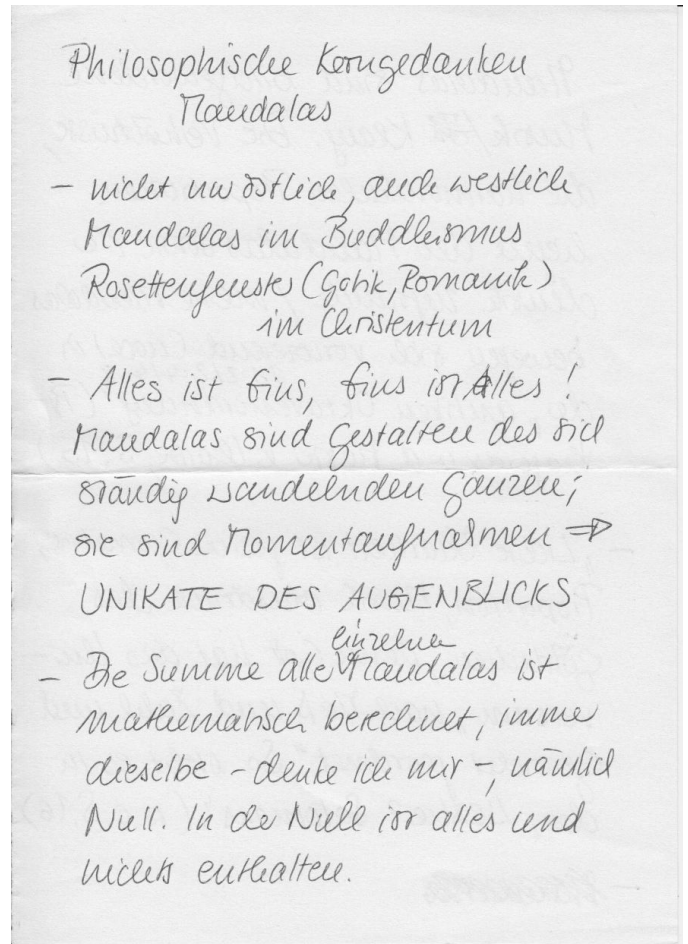 Philosophische Kerngedanken
Mandalas
- nicht nur östlich, auch westlich
Mandalas im Buddhismus
Rosettenfenster (Gotik, Romanik)
im Christentum
- Alles ist Eins, Eins ist Alles!
Mandalas sind Gestalten des sich
ständig wandelnden Ganzen;
sie sind Momentaufnahmen ⇒
UNIKATE DES AUGENBLICKS
- Die Summe aller einzelnen Mandalas ist
mathematisch berechnet, immer
dieselbe - denke ich mir -, nämlich
Null. In der Null ist alles und
nichts enthalten.